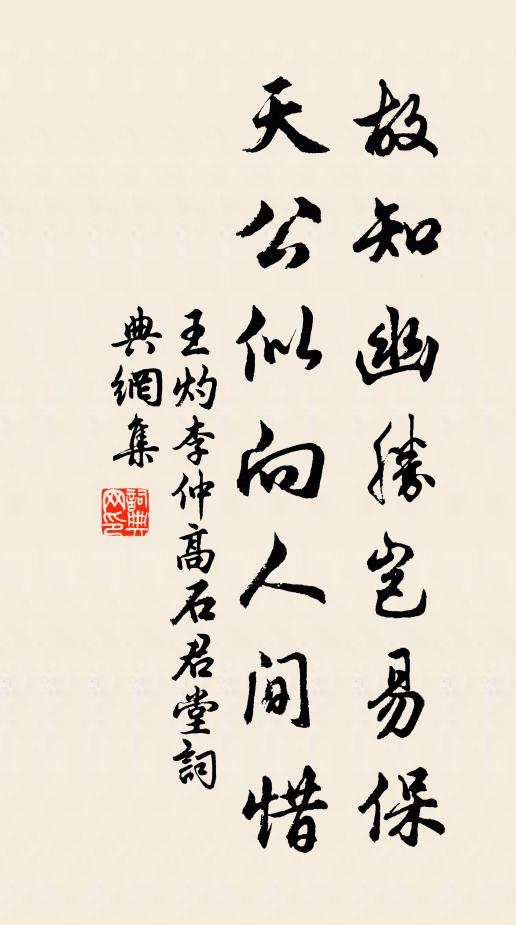 故知幽勝豈易保
天公似向人間惜
王灼李仲高石君堂詞
典網集
詞典
网印